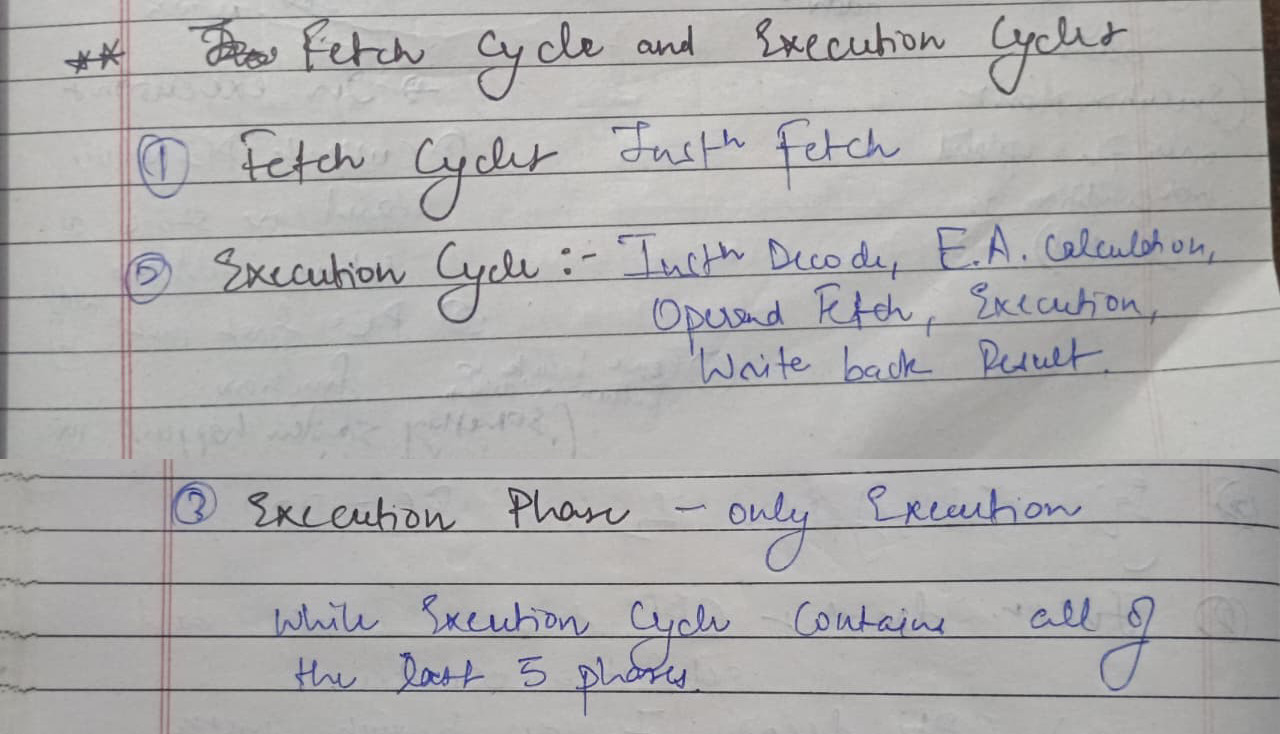 ** Fetch Cycle and Execution Cycles
① Fetch Cycles Instn Fetch
② Execution Cycle :- Instn Decode, E.A. Calculation,
Operand Fetch, Execution,
Write back Result.
③ Execution Phase - only Execution
while Execution Cycle contains all of
the last 5 phases.